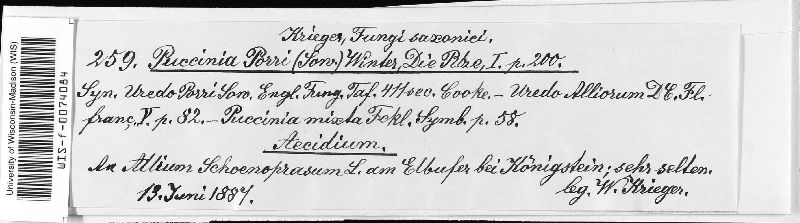 University of Wisconsin-Madison (WIS)
WIS-f-0074084
Krieger, Fungi saxonici.
259. Puccinia Porri (Sow.) Winter, Die Pilze, I. p. 200.
Syn. Uredo Porri Sow. Engl. Fung. Taf. 411 sec. Cooke. – Uredo Alliorum DC. Fl.
franç. V. p. 82. – Puccinia mixta Fckl. Symb. p. 58.
Aecidium.
An Allium Schoenoprasum L. am Elbufer bei Königstein; sehr selten.
13. Juni 1887. leg. W. Krieger.